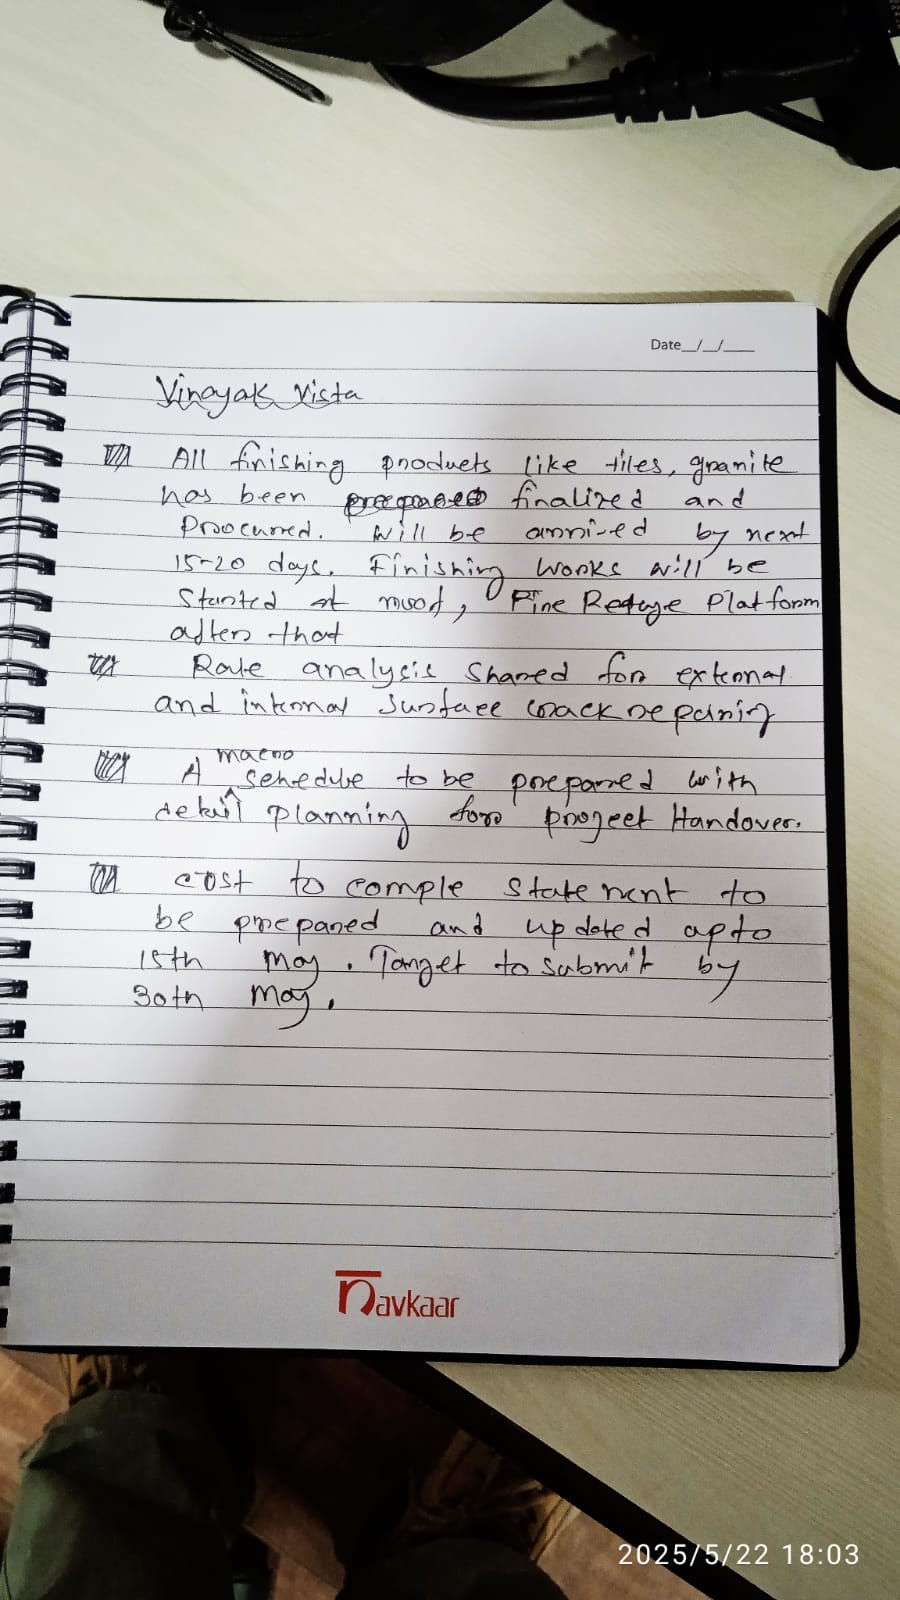 Date__/__/____
Vinayak Vista
All finishing products like tiles, granite
has been finalized and
Procured. Will be arrived by next
15-20 days. Finishing works will be
Started at roof, Fire Refuge Platform
after that
Rate analysis shared for external
and internal surface crack repairing
macro
A schedule to be prepared with
detail planning for project Handover.
cost to comple statement to
be prepared and updated upto
15th May. Target to submit by
30th May.
navkaar
2025/5/22 18:03